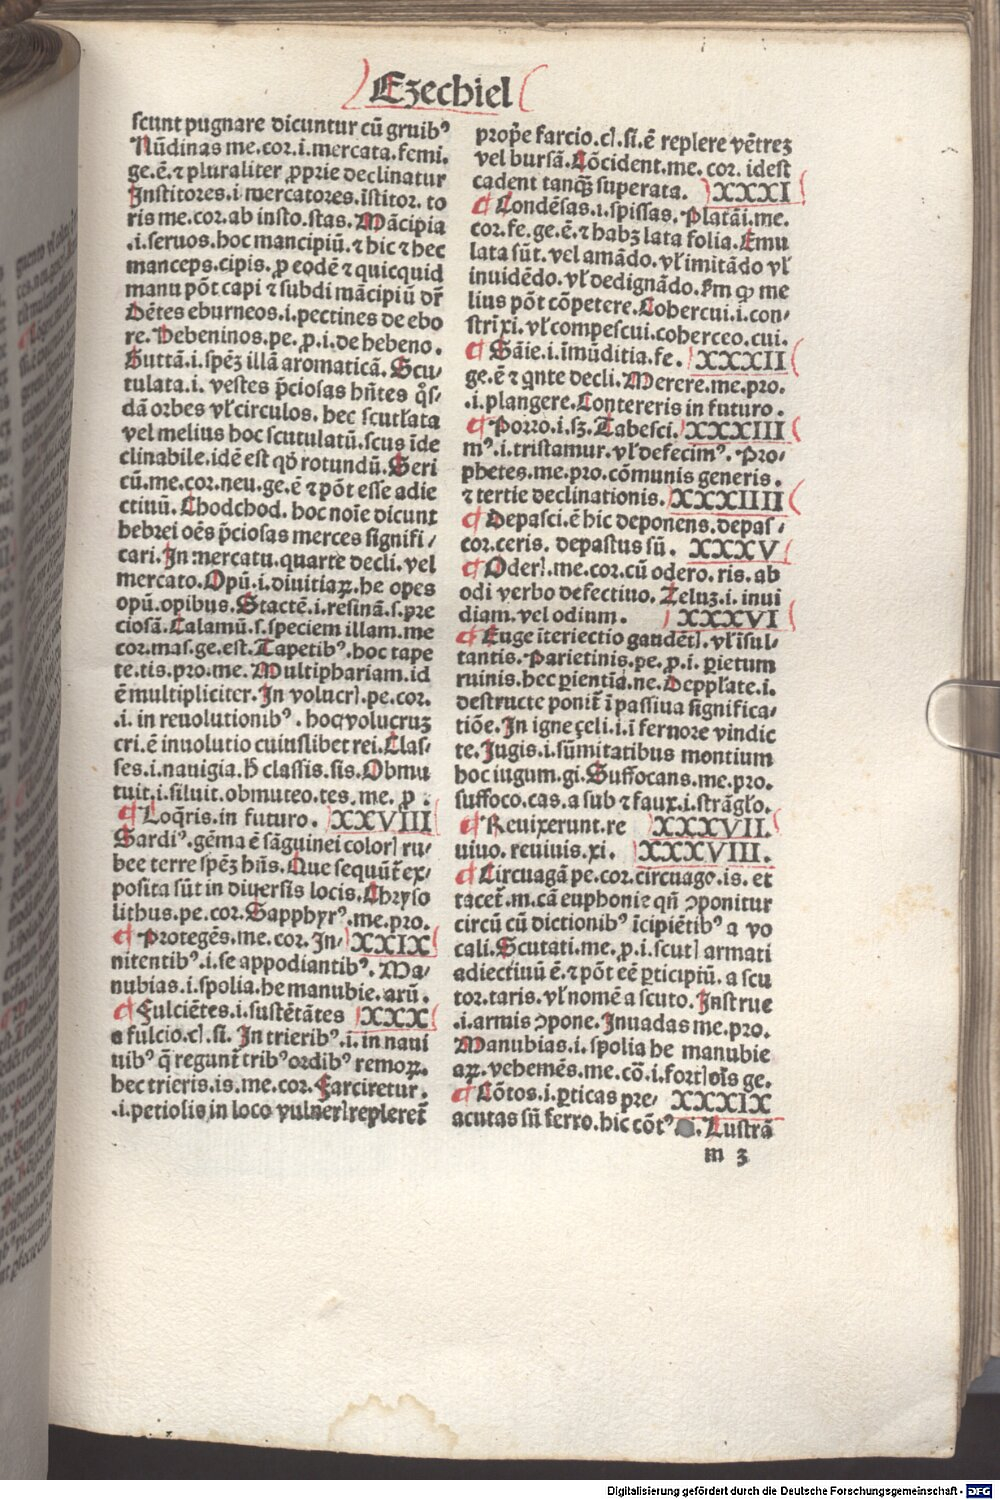 Ezechiel
scunt pugnare dicuntur cū gruibꝰ
Nūdinas me.cor.i.mercata.femi.
ge.ē.⁊ pluraliter ꝓprie declinatur
Institores.i mercatores.īstitor. to
ris me.cor.ab insto.stas.Mācipia
.i.seruos.hoc mancipiū.⁊ hic ⁊ hec
manceps.cipis.ꝓ eodē ⁊ quicquid
manu pōt capi ⁊ subdi mācipiū dr̄
Dētes eburneos.i.pectines de ebo
re.Hebeninos.pe.ꝓ.i.de hebeno.
Guttā.i.spēꝫ illā aromaticā.Scu/
tulata.i. vestes p̄ciosas hn̄tes q̊s/
dā orbes vl̓ circulos. hec scutl̓ata
vel melius hoc scutulatū.scus īde
clinabile.idē est qd̓ rotundū.Seri
cū.me.cor.neu.ge.ē ⁊ pōt esse adie
ctiuū.Chodchod. hoc noīe dicunt
hebrei oēs p̄ciosas merces signifi/
cari.In mercatu.quarte decli.vel
mercato.Opū.i.diuitiaꝝ.he opes
opū.opibus.Stactē.i.resinā.s.pre
ciosā.Calamū.s.speciem illam.me
cor.mas.ge.est.Tapetibꝰ.hoc tape
te.tis.pro.me.Multiphariam.id
ē multipliciter.In volucrꝭ.pe.cor.
.i. in reuolutionibꝰ. hoc volucruꝫ
cri.ē inuolutio cuiuslibet rei.Clas/
ses.i.nauigia.h̄ classis.sis.Obmu
tuit.i.siluit.obmuteo.tes.me. ꝓ.
¶ Loq̄ris.in futuro. XXVIII
Sardiꝰ.gēma ē sāguinei colorꝭ ru/
bee terre spēꝫ hn̄s.Que sequūt̄ ex/
posita sūt in diuersis locis.Chryso
lithus.pe.cor.Sapphyrꝰ.me.pro.
¶ Protegēs.me.cor.In/ XXIX
nitentibꝰ.i.se appodiantibꝰ.Ma/
nubias.i.spolia.he manubie.arū.
¶ Fulciētes.i.sustētātes XXX
a fulcio.cꝭ.si. In trieribꝰ.i.in naui
uibꝰ q̄ regunt̄ tribꝰ ordībꝰ remoꝝ.
hec trieris.is.me.cor.Farciretur.
.i.petiolis in loco vulnerꝭ repleret̄
prop̄e farcio.cꝭ.si.ē replere vētreꝫ
vel bursā.Cōcident.me.cor.idest
cadent tanq̄ꝫ superata. XXXI
¶ Condēsas.i.spissas.Platāi.me.
cor.fe.ge.ē.⁊ habꝫ lata folia.Emu
lata sūt.vel amādo.vl̓ imitādo vl̓
inuidēdo.vl̓ dedignādo.ẜm ꝙ me
lius pōt cōpetere.Cohercui.i.con/
strīxi.vl̓ compescui.coherceo.cui.
¶ Sāie.i.īmūditia.fe. XXXII
ge.ē ⁊ qnte decli.Merere.me.pro.
.i.plangere.Contereris in futuro.
¶ Porro.i.sꝫ.Tabesci. XXXIII
mꝰ.i.tristamur.vl̓ defecimꝰ.Pro/
phetes.me.pro.cōmunis generis.
⁊ tertie declinationis. XXXIIII
¶ Depasci.ē hic deponens.depas/
cor.ceris. depastus sū. XXXV
¶ Oderꝭ.me.cor.cū odero.ris.ab
odi verbo defectiuo.Zeluꝫ.i.inui
diam.vel odium. XXXVI
¶ Euge īteriectio gaudētꝭ.vl̓ īsul/
tantis.Parietinis.pe.ꝓ.i.ꝑietum
ruinis.hec ꝑientia.ne.Deppl̓ate.i.
destructe ponit̄ ī passiua significa/
tiōe.In igne çeli.i.ī fernore vindic
te.Iugis.i.sūmitatibus montium
hoc iugum.gi.Suffocans.me.pro.
suffoco.cas.a sub ⁊ faux.i.strāgl̓o.
¶ Reuixerunt.re XXXVII.
uiuo.reuiuis.xi. XXXVIII.
¶ Circuagā pe.cor.circuago.is. et
tacet̄.m.cā euphonie qn̄ ↄponitur
circū cū dictionibꝰ īcipiētibꝰ a vo
cali.Scutati.me.ꝓ.i.scutꝭ armati
adiectiuū ē.⁊ pōt eē ꝑticipiū.a scu
tor.taris.vl̓ nomē a scuto.Instrue
.i.armis ↄpone.Inuadas me.pro.
Manubias.i.spolia he manubie
aꝝ.vehemēs.me.cō.i.fortꝭ oīs ge.
¶ Cōtos.i.ꝑticas pre/ XXXIX
acutas sn̄ ferro.hic cōtꝰ. Lustrā
m 3
Digitalisierung gefördert durch die Deutsche Forschungsgemeinschaft - DFG